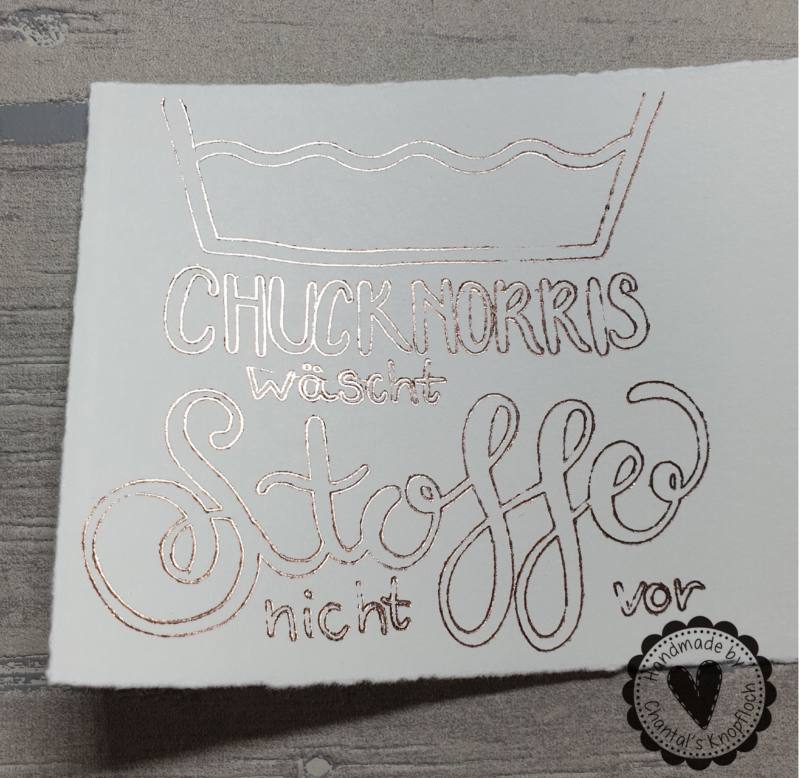 CHUCK NORRIS
wäscht
Stoffe
nicht vor
Handmade by
Chantal's Knopfloch